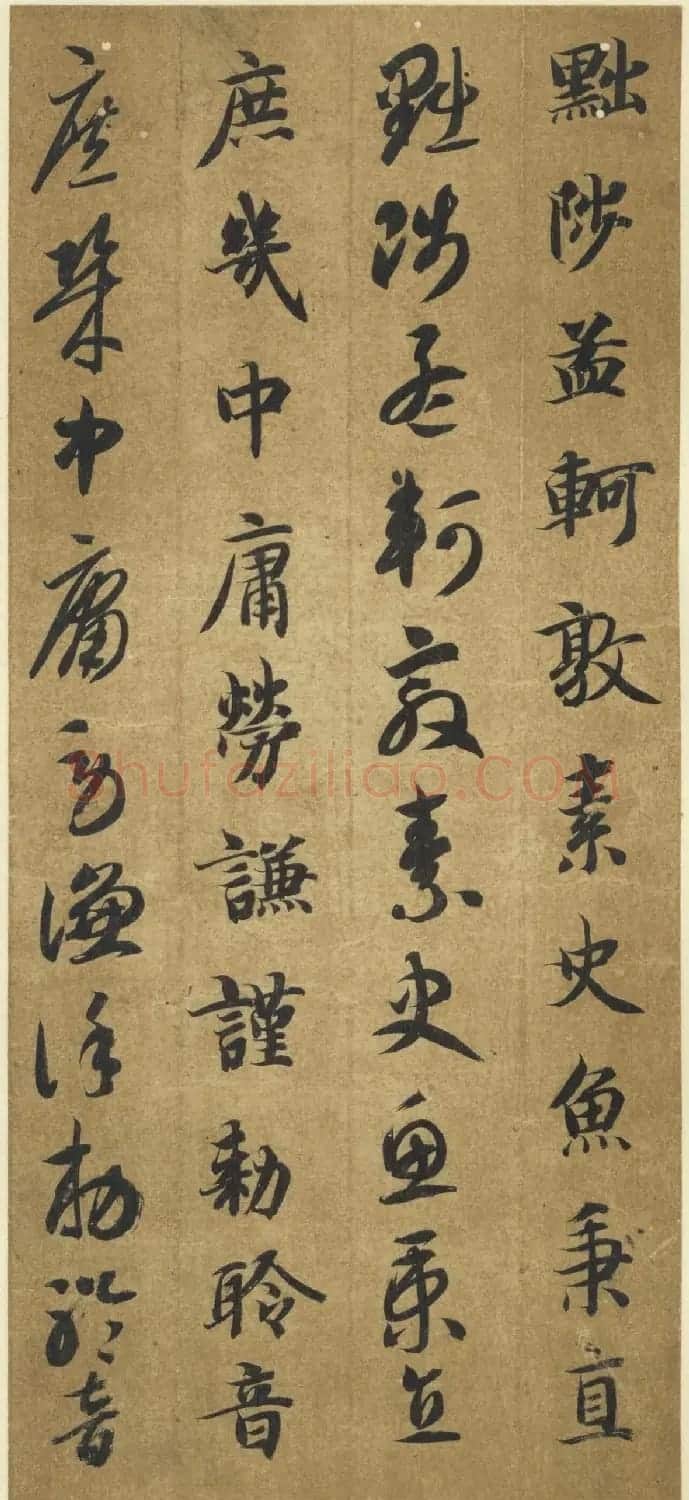 黜陟益軻敦素史魚秉直
黜陟孟軻敦素史魚秉直
庶幾中庸勞謙謹勅聆音
庶幾中庸勞謙謹勅聆音
Shufaziliao.COM